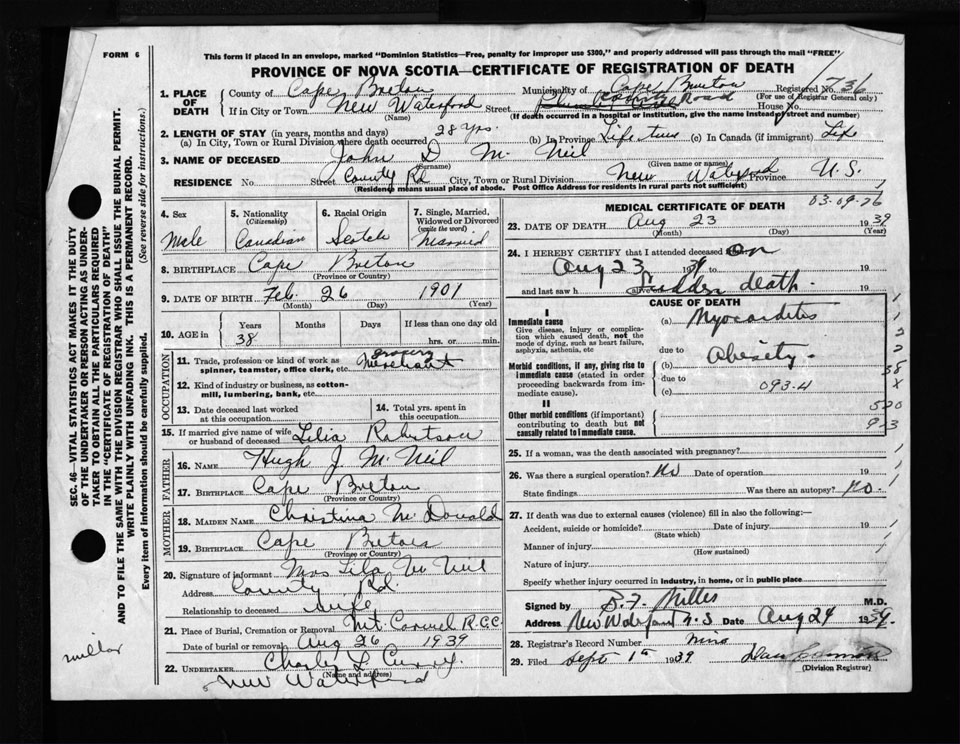 FORM 6
This form if placed in an envelope, marked "Dominion Statistics—Free, penalty for improper use $300," and properly addressed will pass through the mail "FREE"
PROVINCE OF NOVA SCOTIA—CERTIFICATE OF REGISTRATION OF DEATH
SEC. 46—VITAL STATISTICS ACT MAKES IT THE DUTY
OF THE UNDERTAKER OR PERSON ACTING AS UNDER-
TAKER TO OBTAIN ALL THE PARTICULARS REQUIRED
IN THE "CERTIFICATE OF REGISTRATION OF DEATH"
AND TO FILE THE SAME WITH THE DIVISION REGISTRAR WHO SHALL ISSUE THE BURIAL PERMIT.
WRITE PLAINLY WITH UNFADING INK. THIS IS A PERMANENT RECORD.
Every item of information should be carefully supplied. (See reverse side for instructions.)
1. PLACE OF DEATH
County of Cape Breton Municipality of Cape Breton Registered No. 736
(For use of Registrar General only)
If in City or Town New Waterford Street County Road House No.
(Name) (If death occurred in a hospital or institution, give the name instead of street and number)
2. LENGTH OF STAY (in years, months and days)
(a) In City, Town or Rural Division where death occurred 28 yrs. (b) In Province Life time (c) In Canada (if immigrant) Life
3. NAME OF DECEASED John D Mc Neil
(Surname) (Given name or names)
RESIDENCE No Street County Rd City, Town or Rural Division New Waterford Province N.S.
(Residence means usual place of abode. Post Office Address for residents in rural parts not sufficient)
4. Sex Male
5. Nationality (Citizenship) Canadian
6. Racial Origin Scotch
7. Single, Married, Widowed or Divorced (write the word) Married
8. BIRTHPLACE Cape Breton
(Province or Country)
9. DATE OF BIRTH Feb. 26 1901
(Month) (Day) (Year)
10. AGE in Years Months Days If less than one day
38 hrs. or min.
OCCUPATION
11. Trade, profession or kind of work as spinner, teamster, office clerk, etc. grocery Merchant
12. Kind of industry or business, as cotton-mill, lumbering, bank, etc.
13. Date deceased last worked at this occupation
14. Total yrs. spent in this occupation
15. If married give name of wife or husband of deceased Lilia Robertson
FATHER
16. NAME Hugh J. Mc Neil
17. BIRTHPLACE Cape Breton
(Province or Country)
MOTHER
18. MAIDEN NAME Christina Mc Donald
19. BIRTHPLACE Cape Breton
(Province or Country)
20. Signature of informant Mrs Lila Mc Neil
Address County Rd.
Relationship to deceased wife
21. Place of Burial, Cremation or Removal Mt. Carmel R.C.C.
Date of burial or removal Aug 26 1939
22. UNDERTAKER Charles L Curry
(Name and address)
New Waterford
millar
MEDICAL CERTIFICATE OF DEATH 03-09-26
23. DATE OF DEATH Aug 23 1939
(Month) (Day) (Year)
24. I HEREBY CERTIFY that I attended deceased on
Aug 23 1939 to 19
and last saw h alive on Sudden death. 19
CAUSE OF DEATH
I
Immediate cause (a) Myocarditis
Give disease, injury or complication which caused death, not the mode of dying, such as heart failure, asphyxia, asthenia, etc
due to
Morbid conditions, if any, giving rise to immediate cause (stated in order proceeding backwards from immediate cause).
(b) Obesity.
due to
(c) 093.4
II
Other morbid conditions (if important) contributing to death but not causally related to immediate cause.
25. If a woman, was the death associated with pregnancy?
26. Was there a surgical operation? No Date of operation 19
State findings Was there an autopsy? No.
27. If death was due to external causes (violence) fill in also the following:—
Accident, suicide or homicide? Date of injury 19
(State which)
Manner of injury
(How sustained)
Nature of injury
Specify whether injury occurred in industry, in home, or in public place
Signed by B. F. Miller M.D.
Address New Waterford N.S. Date Aug 24 1939.
28. Registrar's Record Number
29. Filed Sept 1st 1939
(Division Registrar)